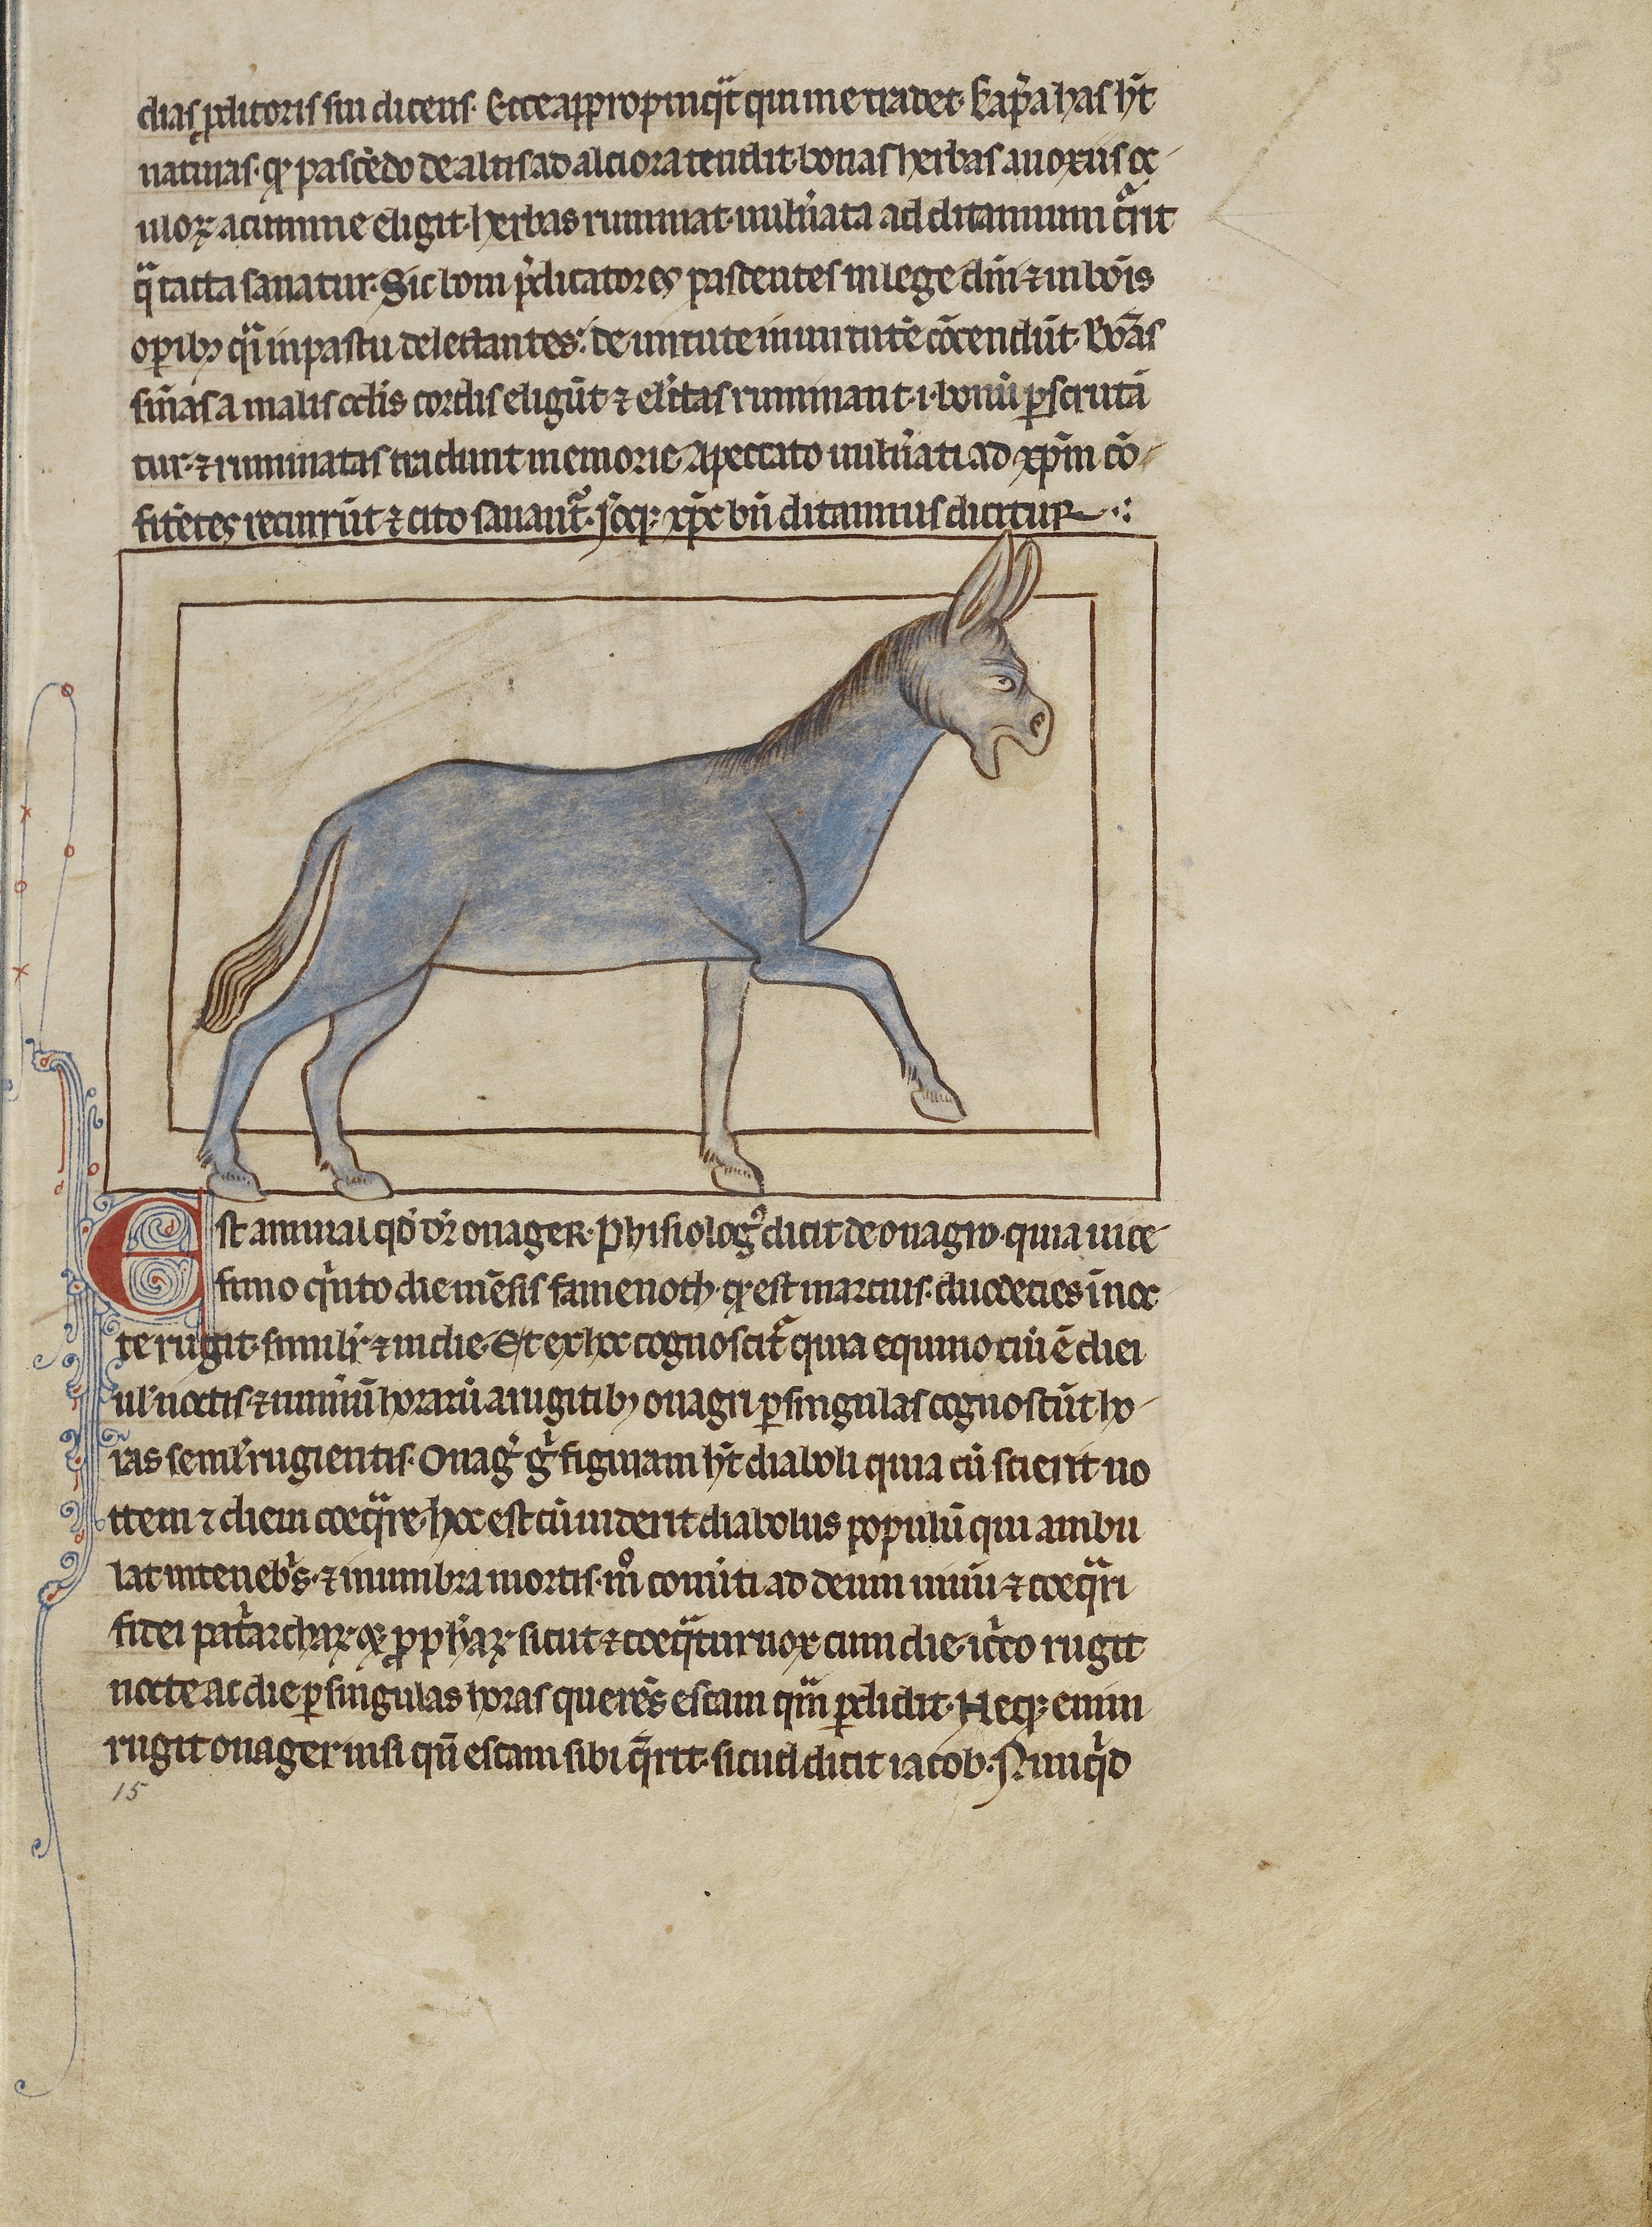 dias ꝓditoris sui dicens. Ecce appropinq̈t qui me tradet. Cap̃a has hñt
naturas. qꝫ pascẽdo de altis ad alciora tendit. bonas herbas a noxiis oc
uloꝝ acumine eligit. herbas ruminat. uuln̾ata ad ditamnum cͥrit
q̈ tacta sanatur. Sic boni p̾dicatores pascentes in lege dñi ⁊ in boĩs
oꝑibꝫ q̈i in pastu delectantes. de uirtute in uirtutẽ cõscendũt. Bonas
sñias a malis oclĩs cordis eligũt ⁊ el̾ctas ruminant .i. bonũ ꝑscrutã
tur. ⁊ ruminatas tradunt memorie. A peccato uuln̾ati ad xp̃m cõ
fitẽtes recurrũt ⁊ cito sanant᷑. xp̃c bñ ditamnus dicitur
Est animal qd̾ dr̾ onager. Phisiolog᷒ dicit de onagro. quia uice
simo qͥnto die mẽsis famenoth. qꝫ est marcius. duodecies in noc
te rugit. simulr̾ ⁊ in die. Et ex hoc cognoscit᷑ quia equinoctiũ ẽ diei
ul̾ noctis. ⁊ num̾ũ horarũ a rugitibꝫ onagri ꝑ singulas cognoscũt ho
ras semel rugientis. Onag̾ g̾ figuram hñt diaboli quia cũ scierit no
ctem ⁊ diem coeq̈re. hoc est cũ uiderit diabolus populũ qui ambu
lat in teneb̾s. ⁊ in umbra mortis. mͦ conu̾ti ad deum uiuũ ⁊ coeq̈ri
fidei patͥarchaꝝ qꝫ ꝓph̾aꝝ. sicut ⁊ coeq̈tur nox cum die. icͥco rugit
nocte ac die ꝑ singulas horas querẽs escam q̈m ꝑdidit. Neqꝫ enim
rugit onager nisi qñ escam sibi q̃rit. sicud dicit iacob. Nunqͥd
15